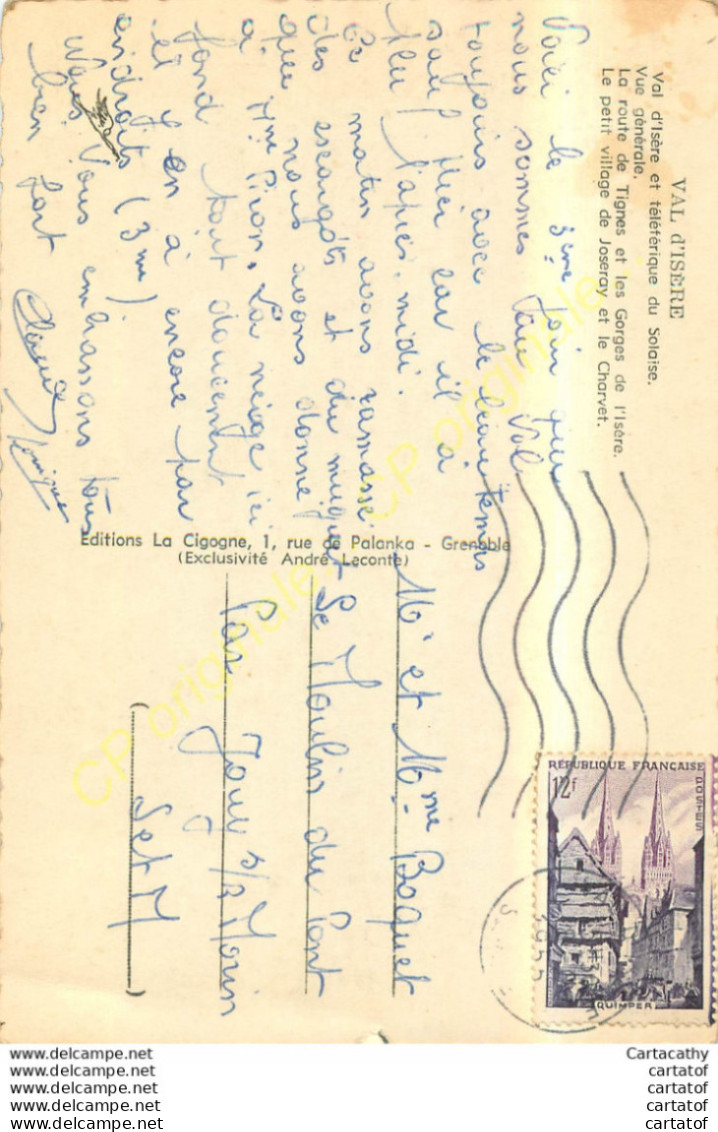 VAL d'ISÈRE
Val d'Isère et téléférique du Solaise.
Vue générale.
La route de Tignes et les Gorges de l'Isère.
Le petit village de Joseray et le Charvet.
Voici le 3ème jour que
nous sommes à Val
toujours avec le beau temps
sauf hier car il a
plu l'après-midi.
Ce matin avons ramassé
des escargots et du muguet
que nous avons donné
à Mme Piron. La neige ici
fond tout doucement
et y en a encore par
endroits (3m)
Nous vous embrassons tous
bien fort
Monique
Editions La Cigogne, 1, rue de Palanka - Grenoble
(Exclusivité André Leconte)
Mr et Mme Boquet
Le Moulin du Pont
Par Jouy s/s Morin
(S et M)
RÉPUBLIQUE FRANÇAISE
12f
POSTES
QUIMPER
CP originale
CP originale
www.delcampe.net
www.delcampe.net
www.delcampe.net
www.delcampe.net
www.delcampe.net
Cartacathy
cartatof
cartatof
cartatof
cartatof